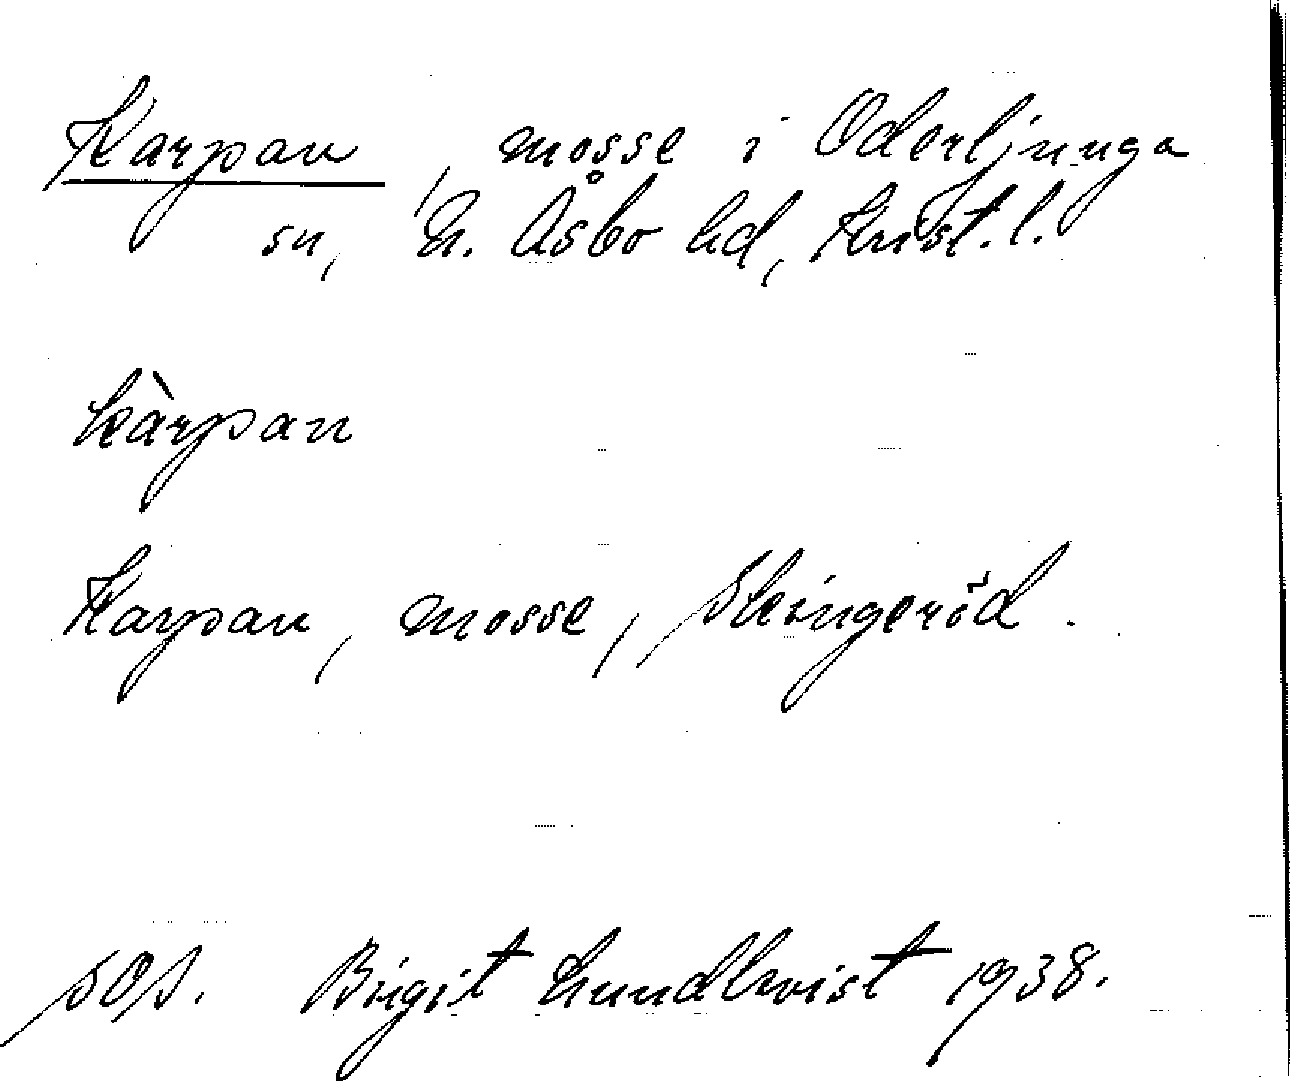 Karpan, mosse i Oderljunga
sn, N. Åsbo hd, Krist. l.
kàrpan
Karpan, mosse, Skingeröd.
SOS. Birgit Lundkvist 1938.